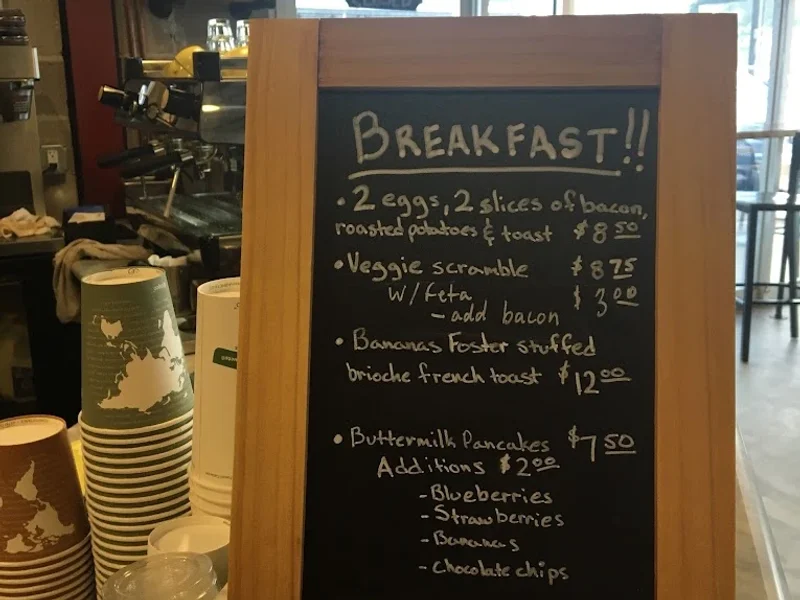 BREAKFAST!!
• 2 eggs, 2 slices of bacon,
roasted potatoes & toast $8 50
• Veggie scramble $8 75
w/feta $3 00
- add bacon
• Bananas Foster stuffed
brioche french toast $12 00
• Buttermilk Pancakes $7 50
Additions $2 00
- Blueberries
- Strawberries
- Bananas
- Chocolate chips